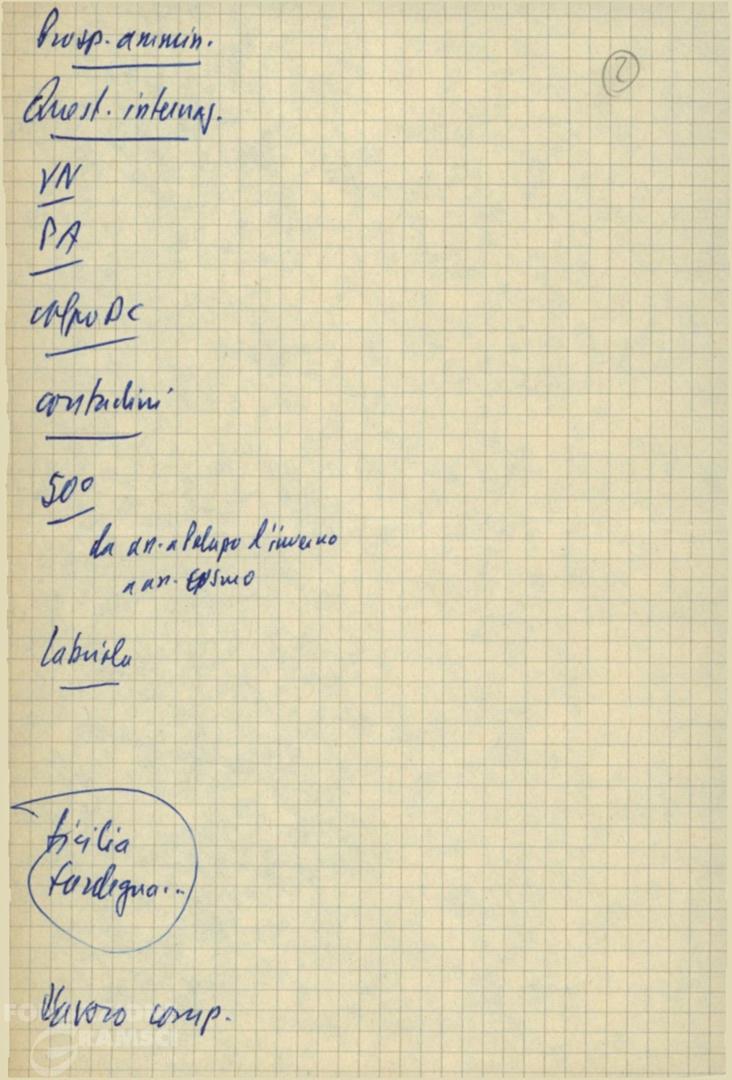 Prosp. ammin.
2
Quest. internaz.
VN
PA
colpo DC
contadini
50º
da an. a l'inverno
a an.
Labriola
Sicilia
Sardegna...
Lavoro comp.
FONDAZIONE
GRAMSCI